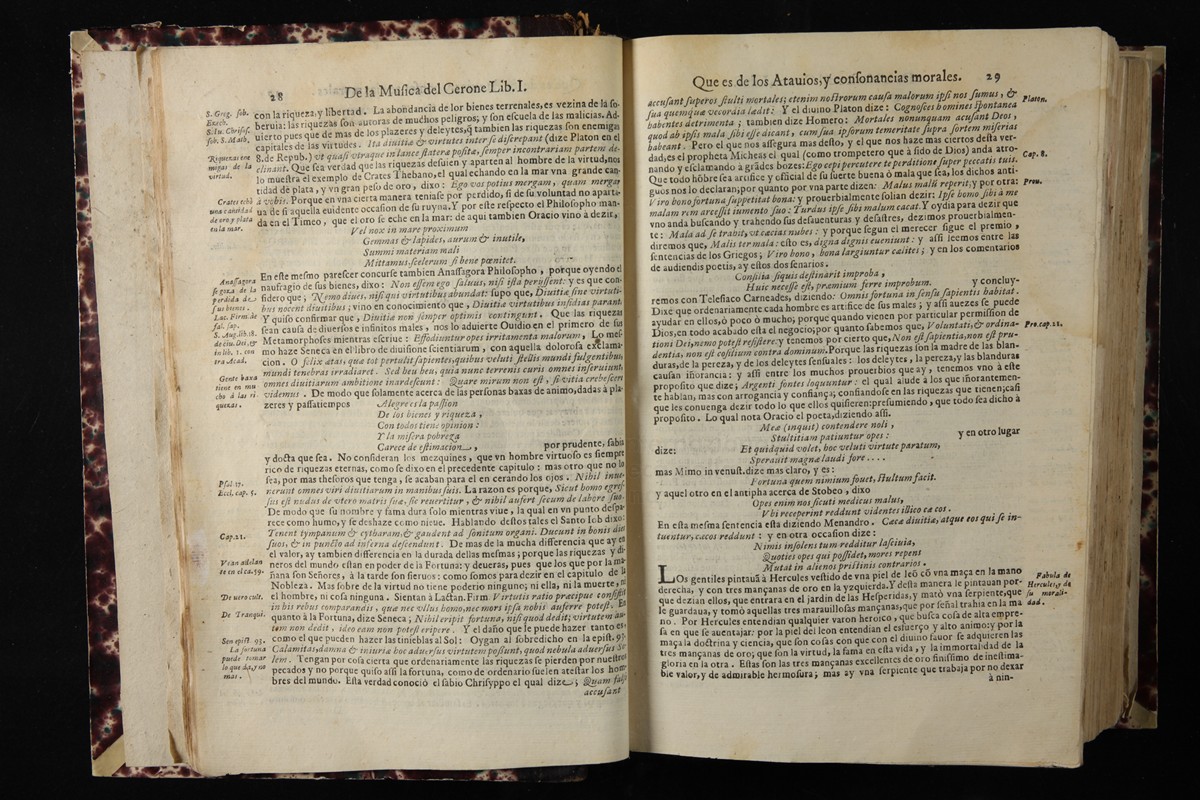 28 De la Musica del Cerone Lib. I.
con la riqueza, y libertad. La abondancia de lor bienes terrenales, es vezina de la so-
beruia: las riquezas son autoras de muchos peligros; y son escuela de las malicias. Ad-
uierto pues que de mas de los plazeres y deleytes, q̃ tambien las riquezas son enemigas
capitales de las virtudes. Ita diuitiæ & virtutes inter se discrepant (dize Platon en el
8. de Repub.) vt quasi vtraque in lance stateræ posita, semper incontrariam partem de-
clinant. Que sea verdad que las riquezas desuien y aparten al hombre de la virtud, nos
lo muestra el exemplo de Crates Thebano, el qual echando en la mar vna grande can-
tidad de plata, y vn gran peso de oro, dixo: Ego vos potius mergam, quam mergar
à vobis. Porque en vna cierta manera teniase por perdido, si de su voluntad no aparta-
ua de si aquella euidente occasion de su ruyna. Y por este respecto el Philosopho man-
da en el Timeo, que el oro se eche en la mar: de aqui tambien Oracio vino à dezir,
Vel nox in mare proximum
Gemmas & lapides, aurum & inutile,
Summi materiam mali
Mittamus scelerum si bene pœnitet.
En este mesmo parescer concurse tambien Anassagora Philosopho, porque oyendo el
naufragio de sus bienes, dixo: Non essem ego saluus, nisi ista perissent: y es que con-
sidero que; Nemo diues, nisi qui virtutibus abundat: supo que, Diuitiæ sine virtuti-
bus nocent diuitibus; vino en conocimiento que, Diuitiæ virtutibus insidias parant.
Y quiso confirmar que, Diuitiæ non semper optimis contingunt. Que las riquezas
sean causa de diuersos e infinitos males, nos lo aduierte Ouidio en el primero de sus
Metamorphoses mientras escriue: Effodiuntur opes irritamenta malorum, Lo mes-
mo haze Seneca en el libro de diuisione scientiarum, con aquella dolorosa exclama-
cion. O felix ætas, quæ tot pertulit sapientes, quibus veluti stellis mundi fulgentibus,
mundi tenebras irradiaret. Sed heu heu, quia nunc terrenis curis omnes inseruiunt,
omnes diuitiarum ambitione inardescunt: Quare mirum non est, si vitia crebescere
videmus. De modo que solamente acerca de las personas baxas de animo, dadas à pla-
zeres y passatiempos Alegre es la passion
De los bienes y riqueza,
Con todos tiene opinion:
Y la misera pobreza
Carece de estimacion, por prudente, sabia
y docta que sea. No consideran los mezquines, que vn hombre virtuoso es siempre
rico de riquezas eternas, como se dixo en el precedente capitulo: mas otro que no lo
sea, por mas thesoros que tenga, se acaban para el en cerando los ojos. Nihil inue-
nerunt omnes viri diuitiarum in manibus suis. La razon es porque, Sicut homo egres-
sus est nudus de vtero matris suæ, sic reuertitur, & nihil aufert secum de labore suo.
De modo que su nombre y fama dura solo mientras viue, la qual en vn punto despa-
rece como humo, y se deshaze como nieue. Hablando destos tales el Santo Iob dixo:
Tenent tympanum & cytharam, & gaudent ad sonitum organi. Ducunt in bonis dies
suos, & in puncto ad inferna descendunt. De mas de la mucha differencia que ay en
el valor, ay tambien differencia en la durada dellas mesmas; porque las riquezas y di-
neros del mundo estan en poder de la Fortuna; y deueras, pues que los que por la ma-
ñana son Señores, à la tarde son sieruos: como somos para dezir en el capitulo de la
Nobleza. Mas sobre de la virtud no tiene poderio ninguno; ni ella, ni la muerte, ni
el hombre, ni cosa ninguna. Sientan à Lactan. Firm Virtutis ratio præcipue consistit
in his rebus comparandis, quæ nec vllus homo, nec mors ipsa nobis auferre potest. En
quanto à la Fortuna, dize Seneca; Nihil eripit fortuna, nisi quod dedit; virtutem au-
tem non dedit, ideo eam non potest eripere. Y el daño que le puede hazer tanto es,
como el que pueden hazer las tinieblas al Sol: Oygan al sobredicho en la epist. 93.
Calamitas, damna & iniuria hoc aduersus virtutem possunt, quod nebula aduersus So-
lem. Tengan por cosa cierta que ordenariamente las riquezas se pierden por nuestros
pecados y no porque quiso assi la fortuna, como de ordenario suelen atestar los hom-
bres del mundo. Esta verdad conociò el sabio Chrisyppo el qual dize; Quam falso
accusant
S. Greg. sob.
Ezech.
S. Iu. Chrisos.
sob. S. Math.
Riquezas ene
migas de la
virtud.
Crates echò
vna cantidad
de oro y plata
en la mar.
Anassagora
se goza de la
perdida de
sus bienes.
Luc. Firm. de
fal. sap.
S. Aug. lib. 18.
de ciu. Dei, &
in lib. 1. con
tra Acad.
Gente baxa
tiene en mu
cho à las ri
quezas.
Psal. 17.
Eccl. cap. 5.
Cap. 21.
Vean adelan
te en el ca. 59.
De vero cult.
De Tranqui.
Sen epist. 93.
La fortuna
puede tomar
lo que da, y no
mas.
Que es de los Atauios, y consonancias morales. 29
accusant superos stulti mortales; etenim nostrorum causa malorum ipsi nos sumus, &
sua quemque vecordia lædit: Y el diuino Platon dize: Cognosces homines spontanea
habentes detrimenta; tambien dize Homero: Mortales nonunquam acusant Deos,
quod ab ipsis mala sibi esse dicant, cum sua ipsorum temeritate supra sortem miserias
habeant. Pero el que nos assegura mas desto, y el que nos haze mas ciertos desta ver-
dad, es el propheta Micheas el qual (como trompetero que à sido de Dios) anda atro-
nando y esclamando à grãdes bozes: Ego cepi percutere te perditione super peccatis tuis.
Que todo hõbre sea artifice y official de su suerte buena ò mala que sea, los dichos anti-
guos nos lo declaran; por quanto por vna parte dizen: Malus mali reperit; y por otra:
Viro bono fortuna suppetitat bona: y prouerbialmente solian dezir: Ipse homo sibi à me
malam rem arcessit iumento suo: Turdus ipse sibi malum cacat. Y oy dia para dezir que
vno anda buscando y trahendo sus desuenturas y desastres, dezimos prouerbialmen-
te: Mala ad se trahit, vt cæcias nubes: y porque segun el merecer sigue el premio,
diremos que, Malis ter mala: esto es, digna dignis eueniunt: y assi leemos entre las
sentencias de los Griegos; Viro bono, bona largiuntur cælites; y en los comentarios
de audiendis poetis, ay estos dos senarios.
Consilia siquis destinarit improba,
Huic necesse est, præmium ferre improbum. y concluy-
remos con Telesiaco Carneades, diziendo: Omnis fortuna in sensu sapientis habitat.
Dixe que ordenariamente cada hombre es artifice de sus males; y assi auezes se puede
ayudar en ellos, ò poco ò mucho; porque quando vienen por particular permission de
Dios, en todo acabado esta el negocio; por quanto sabemos que, Voluntati, & ordina-
tioni Dei, nemo potest resistere. y tenemos por cierto que, Non est sapientia, non est pru-
dentia, non est cõsilium contra dominum. Porque las riquezas son la madre de las blan-
duras, de la pereza, y de los deleytes sensuales: los deleytes, la pereza, y las blanduras
causan iñorancia: y assi entre los muchos prouerbios que ay, tenemos vno à este
proposito que dize; Argenti fontes loquuntur: el qual alude à los que iñotantemen-
te hablan, mas con arrogancia y confiança; confiandose en las riquezas que tienen; casi
que les conuenga dezir todo lo que ellos quisieren: presumiendo, que todo sea dicho à
proposito. Lo qual nota Oracio el poeta, diziendo assi.
Meæ (inquit) contendere noli,
Stultitiam patiuntur opes: y en otro lugar
dize: Et quidquid volet, hoc veluti virtute paratum,
Sperauit magnæ laudi fore . . . .
mas Mimo in venust. dize mas claro, y es:
Fortuna quem nimium fouet, stultum facit.
y aquel otro en el antipha acerca de Stobeo, dixo
Opes enim nos sicuti medicus malus,
Vbi receperint reddunt videntes illico cæcos.
En esta mesma sentencia esta diziendo Menandro. Cæca diuitiæ, atque eos qui se in-
tuentur, cæcos reddunt: y en otra occasion dize:
Nimis insolens tum redditur lasciuia,
Quoties opes qui possidet, mores repent
Mutat in alienos pristinis contrarios.
LOs gentiles pintauã à Hercules vestido de vna piel de leõ cõ vna maça en la mano
derecha, y con tres mançanas de oro en la yzquierda. Y desta manera le pintauan por-
que dezian ellos, que entrara en el jardin de las Hesperidas, y matò vna serpiente, que
le guardaua, y tomò aquellas tres marauillosas mançanas, que por señal trahia en la ma
no. Por Hercules entendian qualquier varon heroico, que busca cosa de alta empre-
sa en que se auentajar: por la piel del leon entendian el esfuerço y alto animo: y por la
maça la doctrina y ciencia, que son cosas con que con el diuino fauor se adquieren las
tres mançanas de oro; que son la virtud, la fama en esta vida, y la immortalidad de la
gloria en la otra. Estas son las tres mançanas excellentes de oro finissimo de inestima-
ble valor, y de admirable hermosura; mas ay vna serpiente que trabaja por no dexar
à nin-
Platon.
Cap. 8.
Prou.
Pro. cap. 21.
Fabula de
Hercules, y de
su morali-
dad.